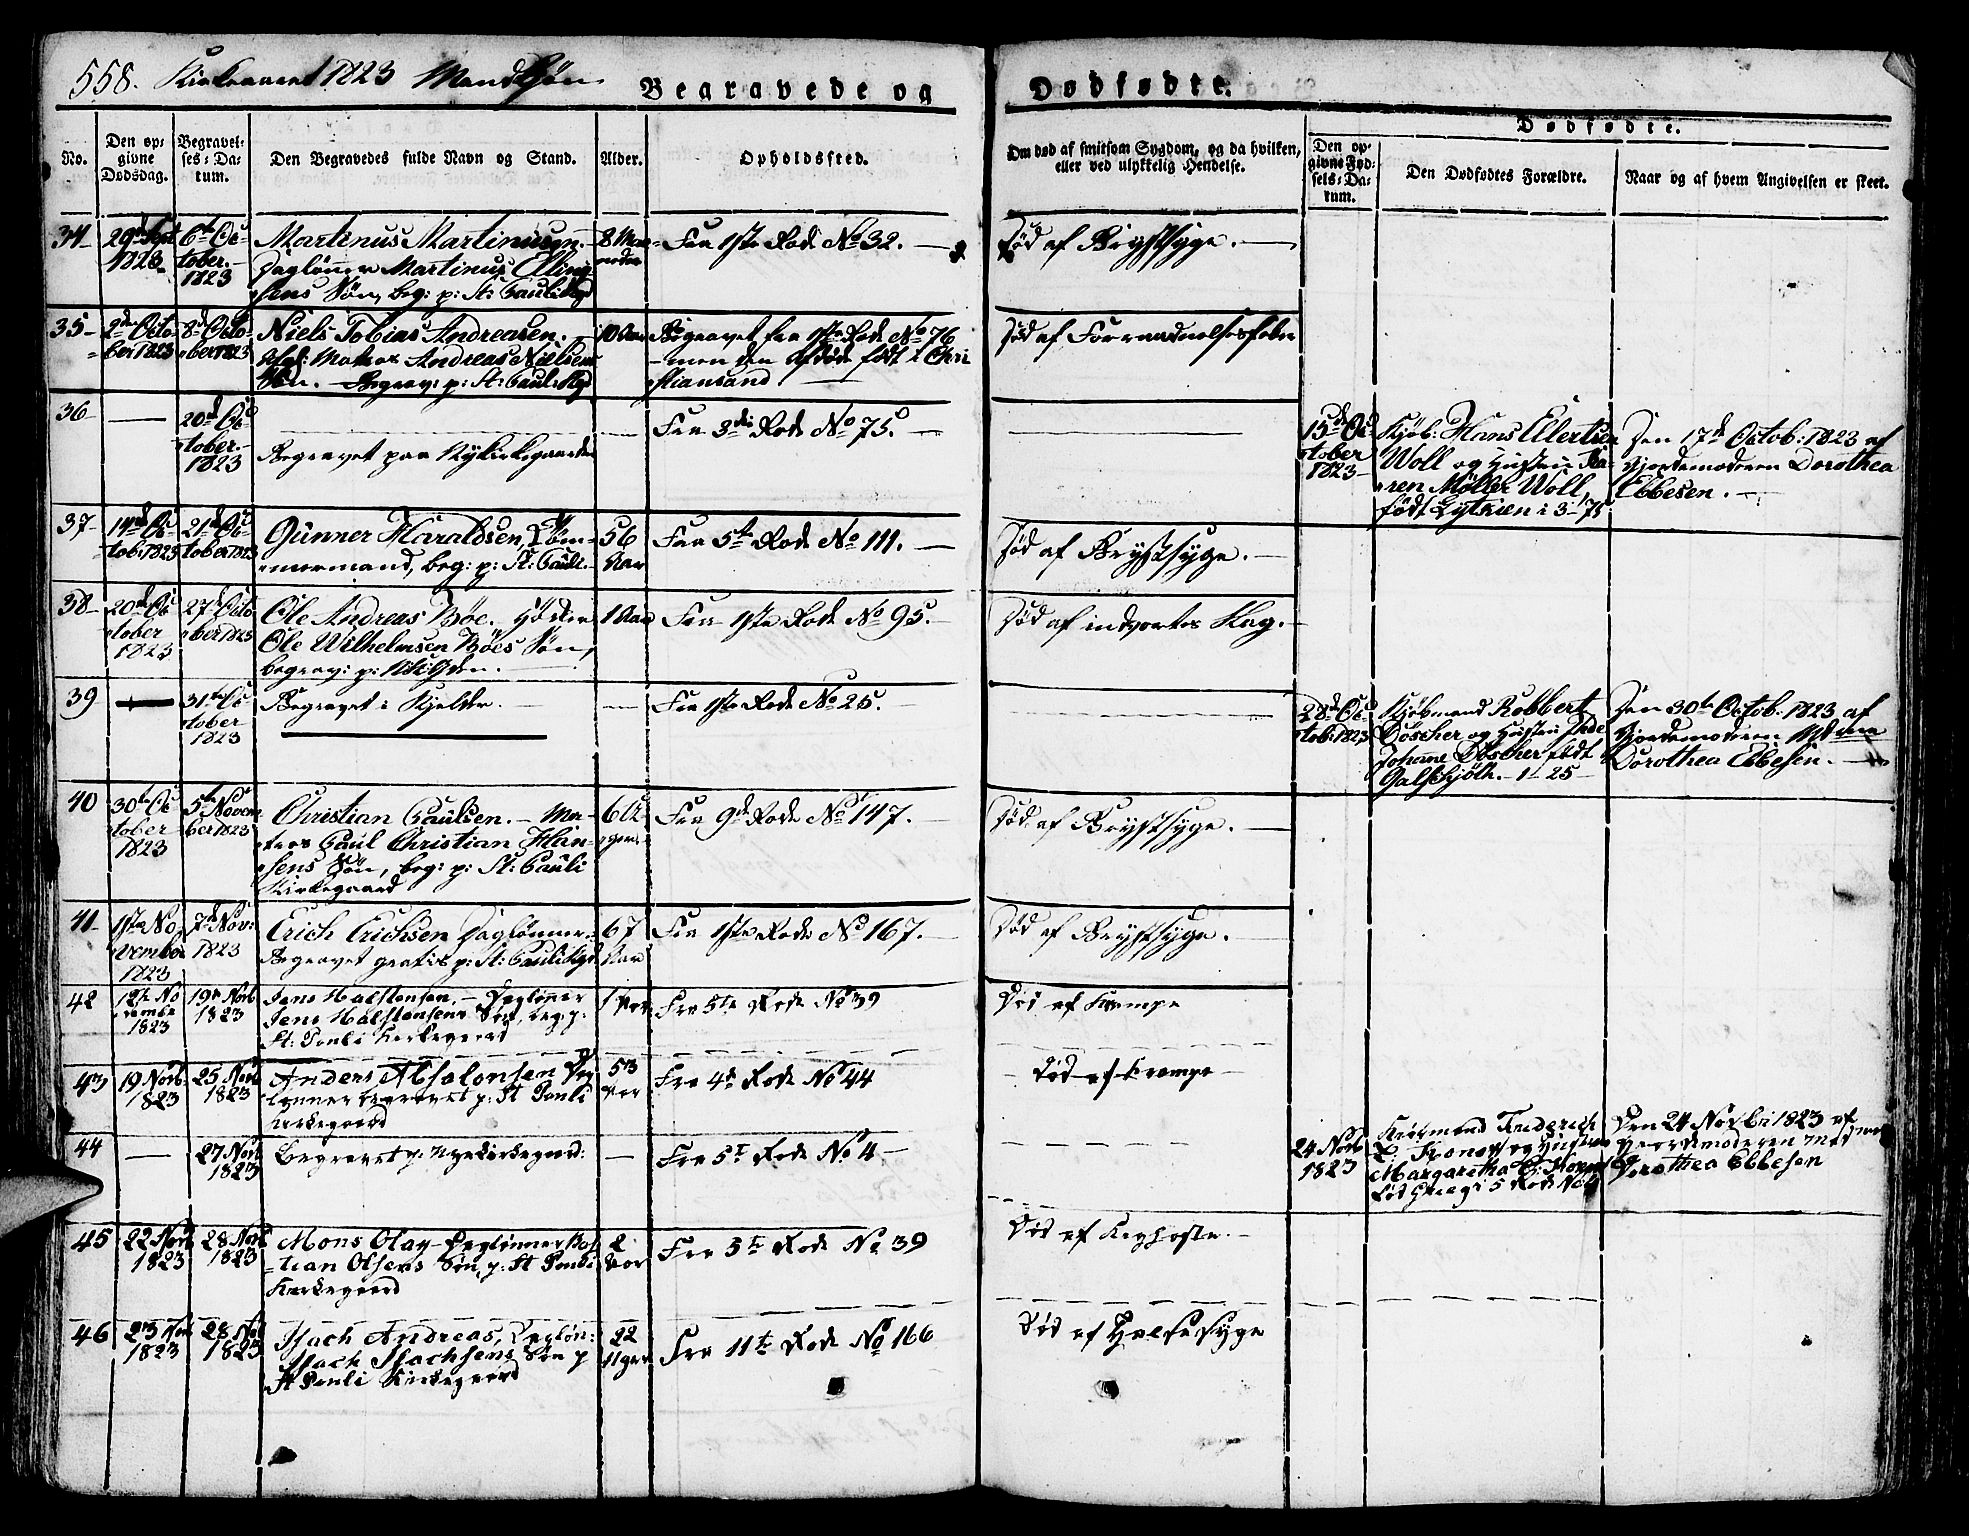 558. Kirkeaaret 1823 Mandkjøn
Begravede og
Dødfødte.
No.
Den op=
givne
Dødsdag.
Begravel=
ses=Da=
tum.
Den Begravedes fulde Navn og Stand.
Alder.
Opholdssted.
Om død af smitsom Sygdom, og da hvilken,
eller ved ulykkelig Hendelse.
Dødfødte.
Den op=
givne Fød=
sels=Da=
tum.
Den Dødfødtes Forældre.
Naar og af hvem Angivelsen er skeet.
34
29 Sept
1823
6te Oc-
tober.
1823
Martinus Martinussen
Daglønner Martinus Elling
sens Søn, beg: p: St: Pauli Kgd
8 Maa-
neder
Fra 1ste Rode No 32.
Død af Brystsyge.
35
2d Octo
ber 1823
8d Octo
ber 1823
Niels Tobias Andreasen.
Matros Andreas Nielsens
Søn. Begrav: p: St: Paul: Kgd
10 Aar
Begravet fra 1ste Rode No 76
men den Afdøde født i Chri
stiansand
Død af Forraadnelsesfeber
36
20d Oc
tober
1823
Begravet paa Nykirkegaarden
Fra 3die Rode No 75.
15d Oc
tober
1823
Kjøb: Hans Ellertsen
Woll og Hustrue Ka-
ren Møller Woll,
født Lytkien i 3-75
Den 17d Octob: 1823 af
Gjordemoderen Dorothea
Ebbesen.
37
14d Oc
tob: 1823
21d Oc-
tober 1823
Gunner Haraldsen, Tøm-
mermand, beg: p: St: Pauli
56
Aar
Fra 5te Rode No 111.
Død af Brystsyge.
38
20d Oc
tober
1823
27d Octo
ber 1823
Ole Andreas Bøe.
Ole Wilhelmsen Bøes Søn,
begrav: p:
1 Aar
Fra 1ste Rode No 95.
Død af indvortes Slag.
39
31te Oc
tober
1823
Begravet i Kjelder.
Fra 1ste Rode No 25.
28d Oc
tob: 1823
Kjøbmand Robbert
Døscher og Hustrue
Johanne Døscher født
Galschjøth. 1-25
Den 30te Octob: 1823 af
Gjordemoderen Mdme
Dorothea Ebbesen.
40
30te Oc
tober
1823
5te Novem
ber 1823
Christian Paulsen. Ma-
tros Paul Christian Han-
sens Søn, beg: p: St: Pauli
Kirkegaard
6 U-
ger
Fra 9de Rode No 147.
Død af Brystsyge.
41
1ste No
vember
1823
7d Nov:
1823
Erich Erichsen Daglønner.
Begravet gratis p: St: Pauli Kgd
67
Aar
Fra 1ste Rode No 167.
Død af Brystsyge.
42
12te No
vembe
1823
19n Novb
1823
Jens Halstensen. Dagløner
Jens Halstensens Søn, beg: p:
St: Pauli Kirkegaard
1 Aar
Fra 5te Rode No 39
Død af Krampe
43
19 Novb:
1823
25 Novb
1823
Anders Absalonsen Dag
lønner begravet p: St Pauli
Kirkegaard
53
Aar
Fra 4de Rode No 44
Død af Krampe
44
27 Novb
1823
Begravet p: Nyekirkegaard:
Fra 5te Rode No 4
24 Novb
1823
Kiøbmand Friderich
L: Konow og Hustrue
Margaretha C: Konow
fød Grieg i 5 Rode No 4
Den 24 Novbr 1823 af
Gjordemoderen Mad
Dorothea Ebbesen
45
22 Novb
1823
28 Novb
1823
Mons Olay Daglønner Bas
tian Olsens Søn, p: St Pauli
Kirkegaard
2
Aar
Fra 5te Rode No 39
Død af Kighoste.
46
23 Nov
1823
28 Nov
1823
Isach Andreas, Dagløn:
Isach Isachsens Søn p
St Pauli Kirkegaard
22
Uger
Fra 11te Rode No 166
Død af Halsesyge